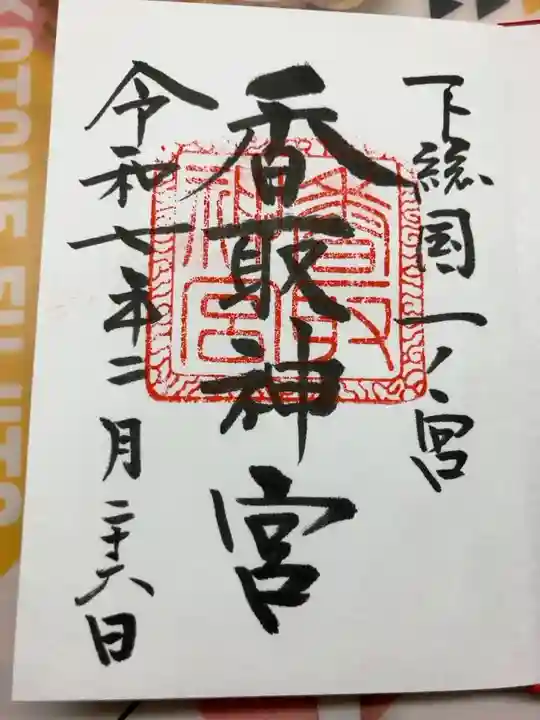 下総国一ノ宮
香取神宮
令和七年二月二十六日
香取神宮
KOTONE FUJITA